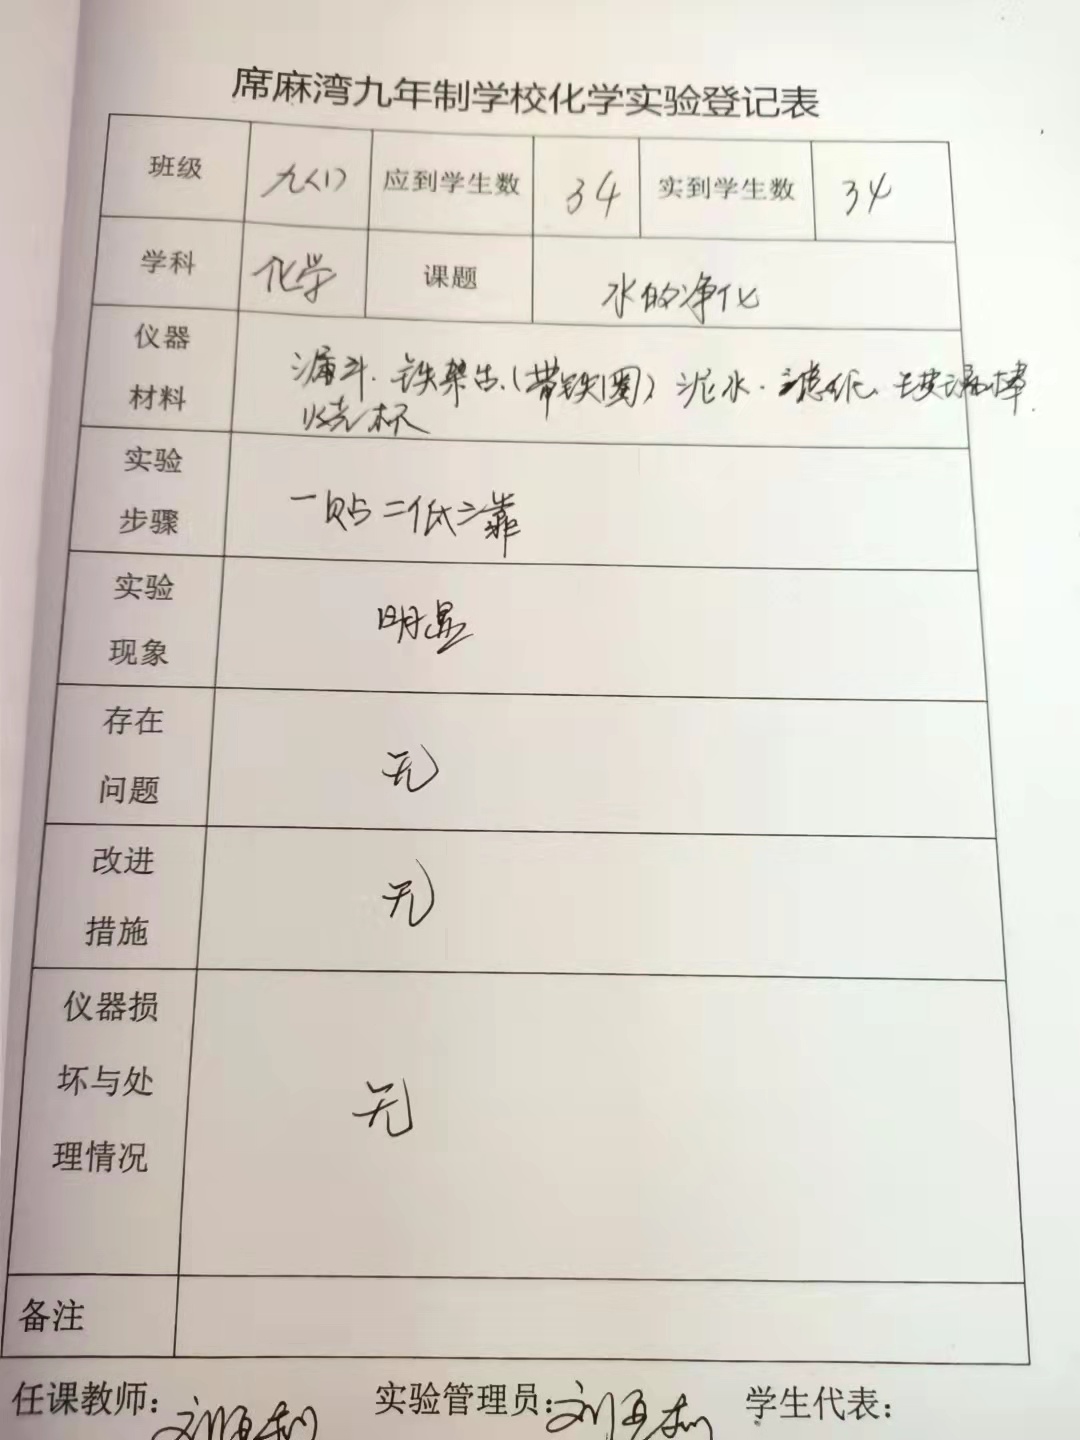 席麻湾九年制学校化学实验登记表
班级 九(1) 应到学生数 34 实到学生数 34
学科 化学 课题 水的净化
仪器
材料
漏斗、铁架台、(带铁圈)泥水、滤纸、玻璃棒、
烧杯
实验
步骤
一贴二低三靠
实验
现象
明显
存在
问题
无
改进
措施
无
仪器损
坏与处
理情况
无
备注
任课教师: 实验管理员: 学生代表: